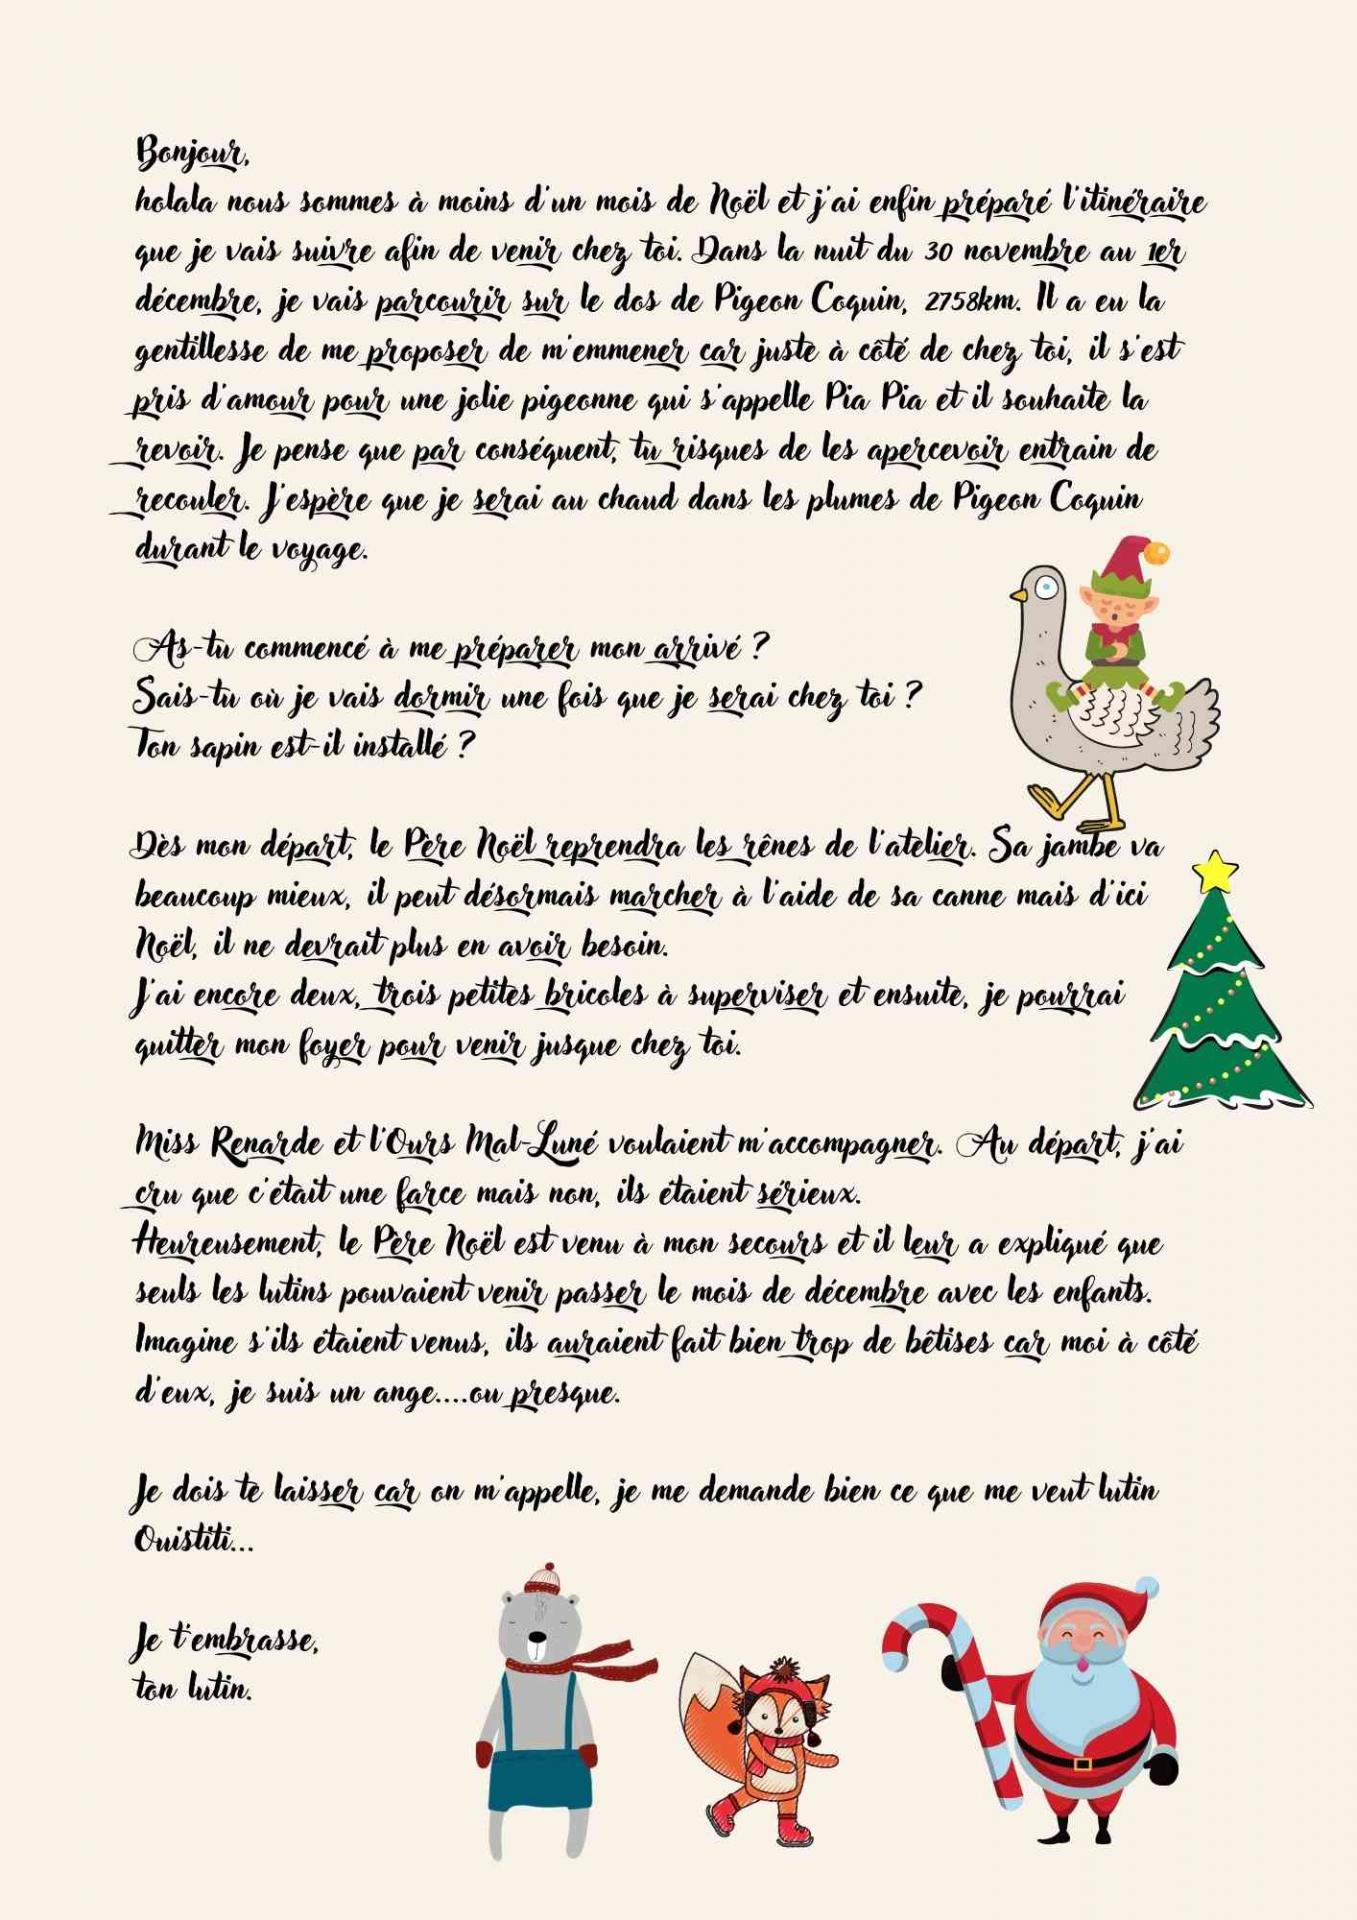 Bonjour,
holala nous sommes à moins d'un mois de Noël et j'ai enfin préparé l'itinéraire
que je vais suivre afin de venir chez toi. Dans la nuit du 30 novembre au 1er
décembre, je vais parcourir sur le dos de Pigeon Coquin, 2758km. Il a eu la
gentillesse de me proposer de m'emmener car juste à côté de chez toi, il s'est
pris d'amour pour une jolie pigeonne qui s'appelle Pia Pia et il souhaite la
revoir. Je pense que par conséquent, tu risques de les apercevoir entrain de
recouler. J'espère que je serai au chaud dans les plumes de Pigeon Coquin
durant le voyage.
As-tu commencé à me préparer mon arrivé ?
Sais-tu où je vais dormir une fois que je serai chez toi ?
Ton sapin est-il installé ?
Dès mon départ, le Père Noël reprendra les rênes de l'atelier. Sa jambe va
beaucoup mieux, il peut désormais marcher à l'aide de sa canne mais d'ici
Noël, il ne devrait plus en avoir besoin.
J'ai encore deux, trois petites bricoles à superviser et ensuite, je pourrai
quitter mon foyer pour venir jusque chez toi.
Miss Renarde et l'Ours Mal-Luné voulaient m'accompagner. Au départ, j'ai
cru que c'était une farce mais non, ils étaient sérieux.
Heureusement, le Père Noël est venu à mon secours et il leur a expliqué que
seuls les lutins pouvaient venir passer le mois de décembre avec les enfants.
Imagine s'ils étaient venus, ils auraient fait bien trop de bêtises car moi à côté
d'eux, je suis un ange....ou presque.
Je dois te laisser car on m'appelle, je me demande bien ce que me veut lutin
Ouistiti...
Je t'embrasse,
ton lutin.